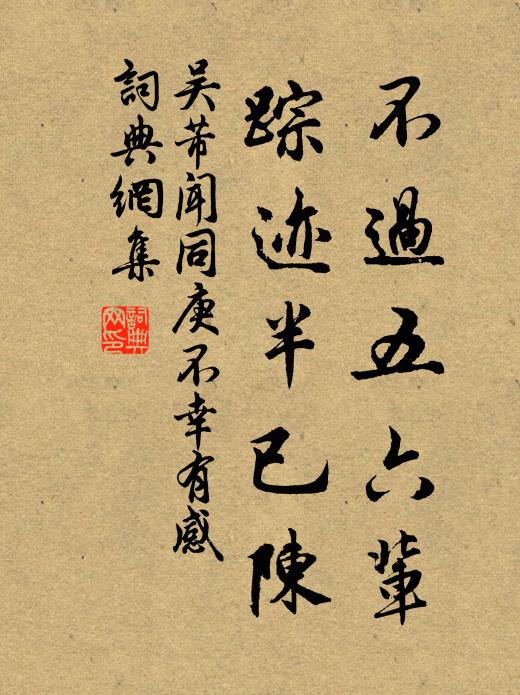 不過五六輩
踪迹半已陳
吴芾聞同庚不幸有感
詞典網集
詞典
网印